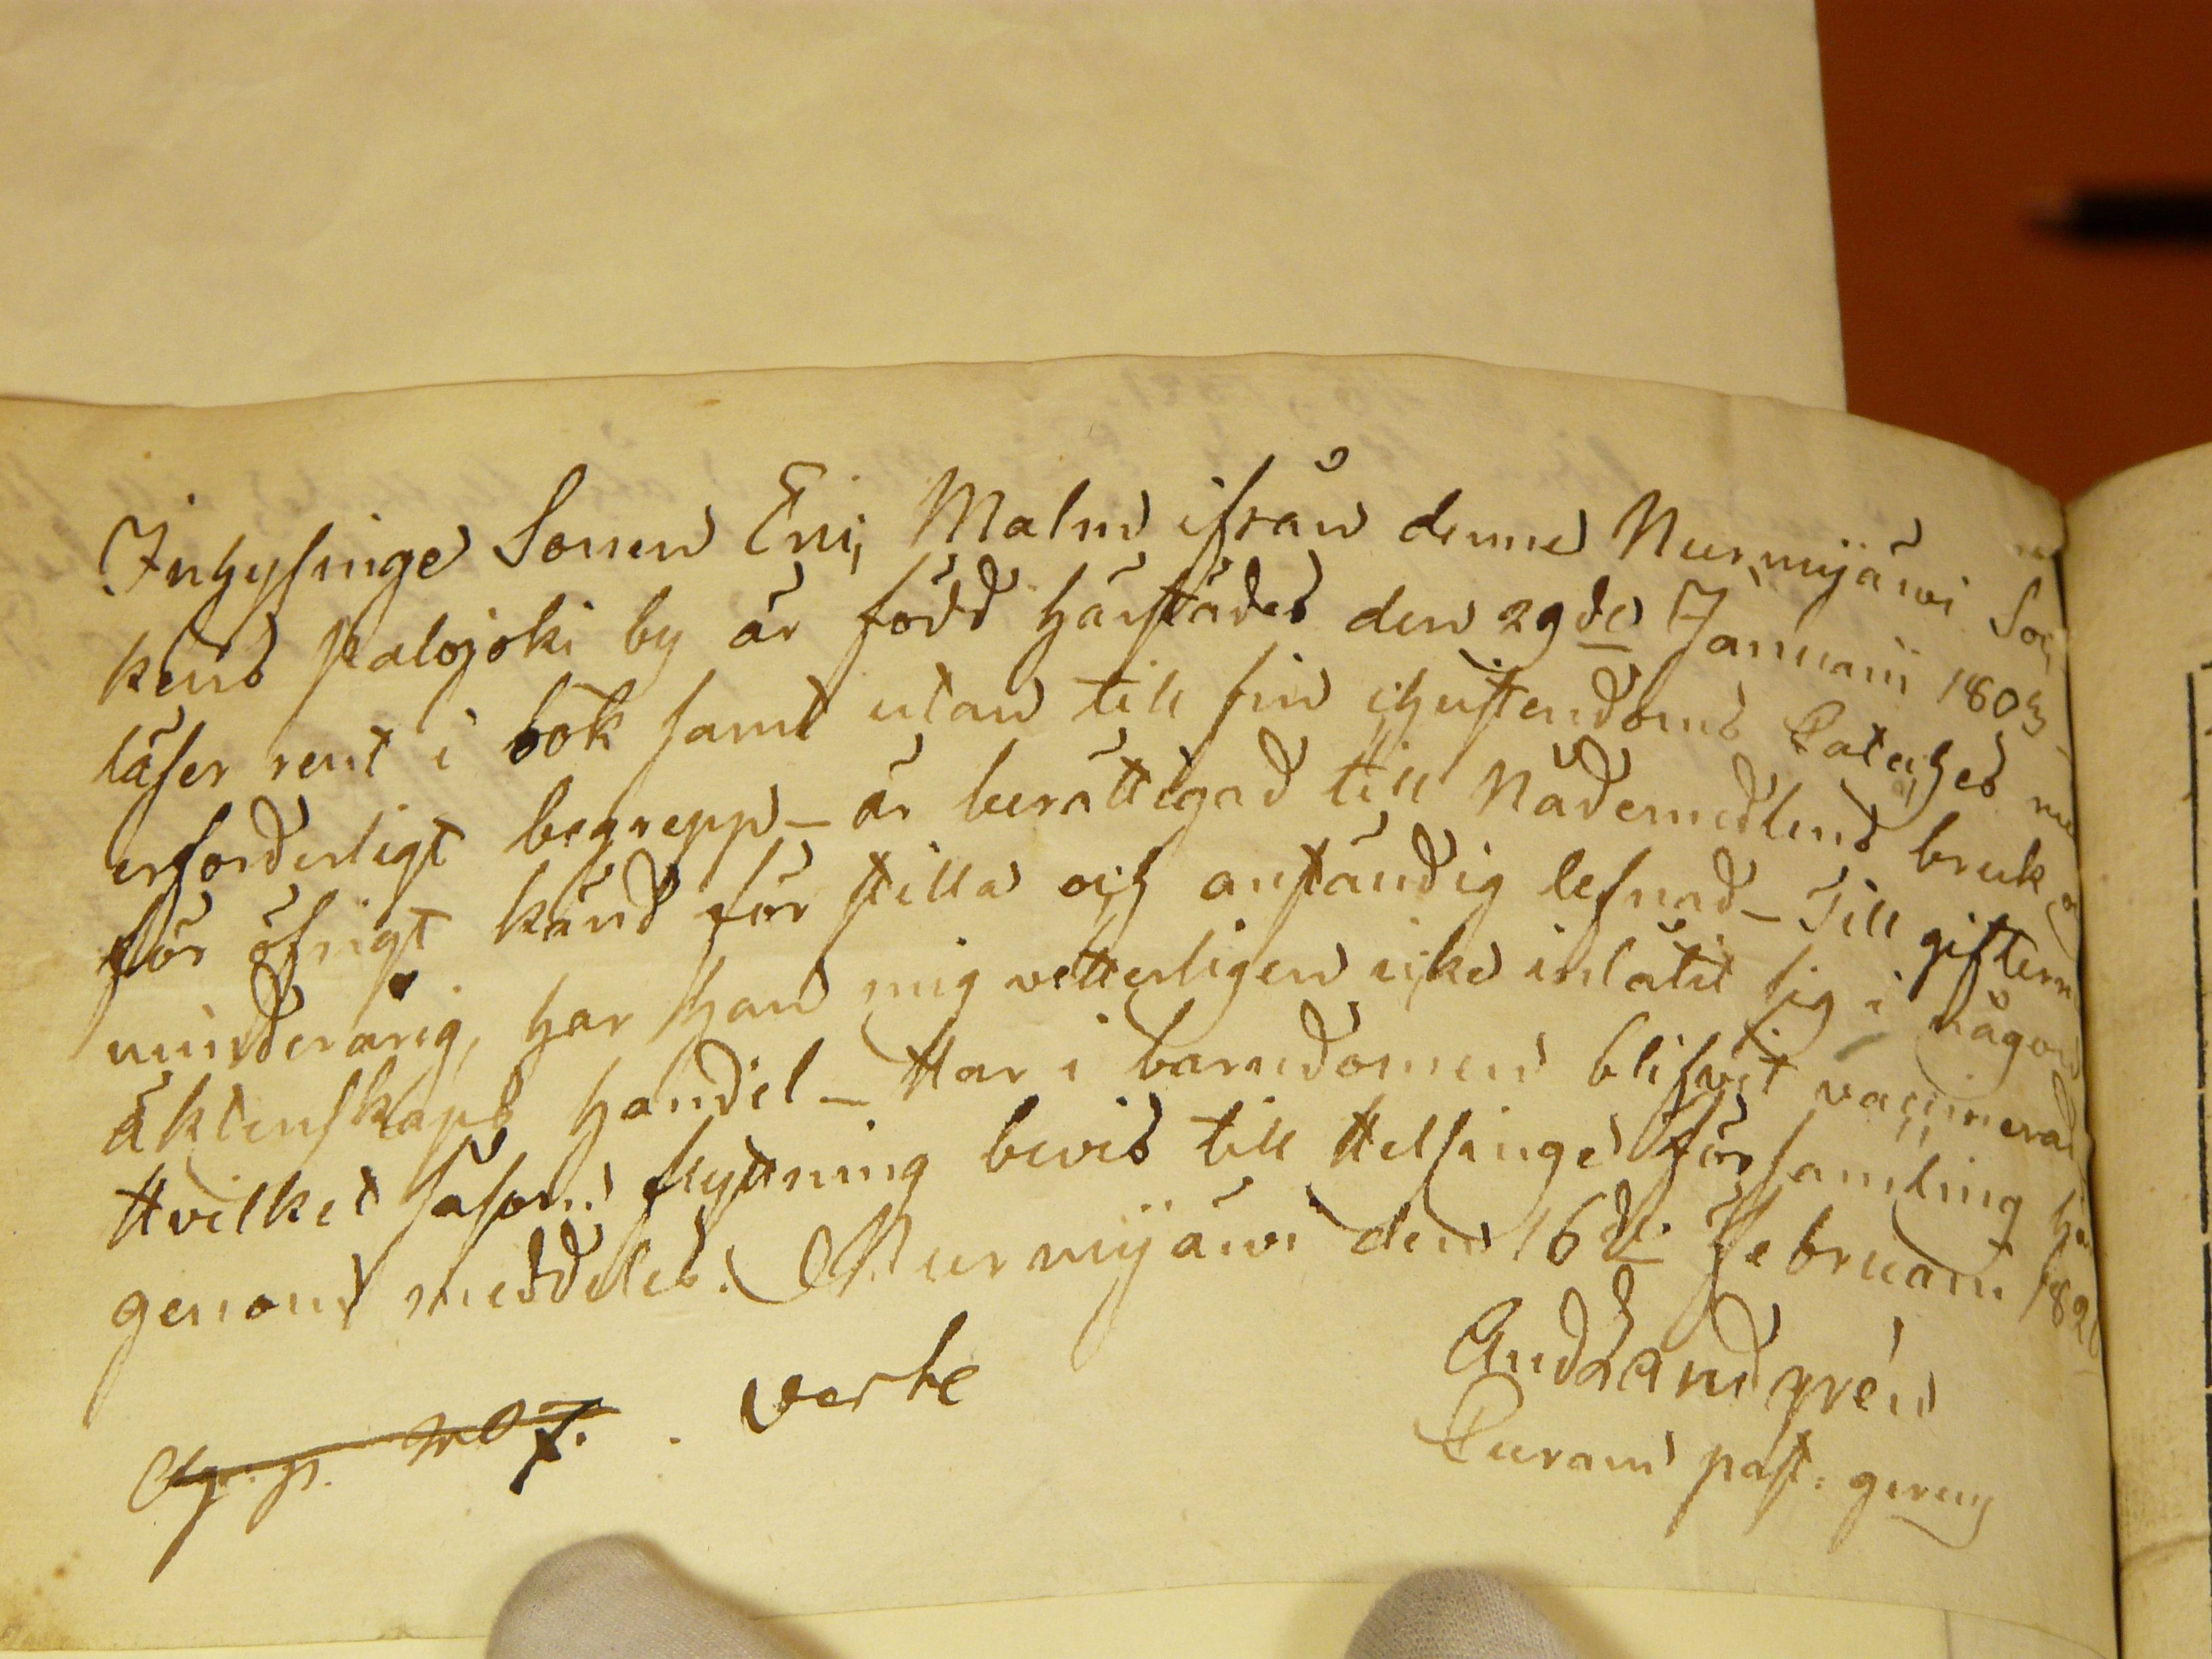 Inhysinge Sonen Eric Malm ifrån denne Nurmijärvi Soc¬
kens Palojoki by är född härstädes den 29de Januarii 1803
läser rent i bok samt utan till sin christendoms Cateches
erforderligt begrepp – är berättigad till Nådemedlens bruk
för öfrigt känd för stilla och anständig lefnad – Till giftern
minderårig, har han mig vetterligen icke inlåtit sig i någon
äktenskaps handel – Har i barndomen blifvit vaccinerad
Hvilket såsom flyttning bevis till Helsinge församling
genom meddeles. Nurmijärvi den 16de Februarii 182
And Landgrén
verte
Curam past. gerens